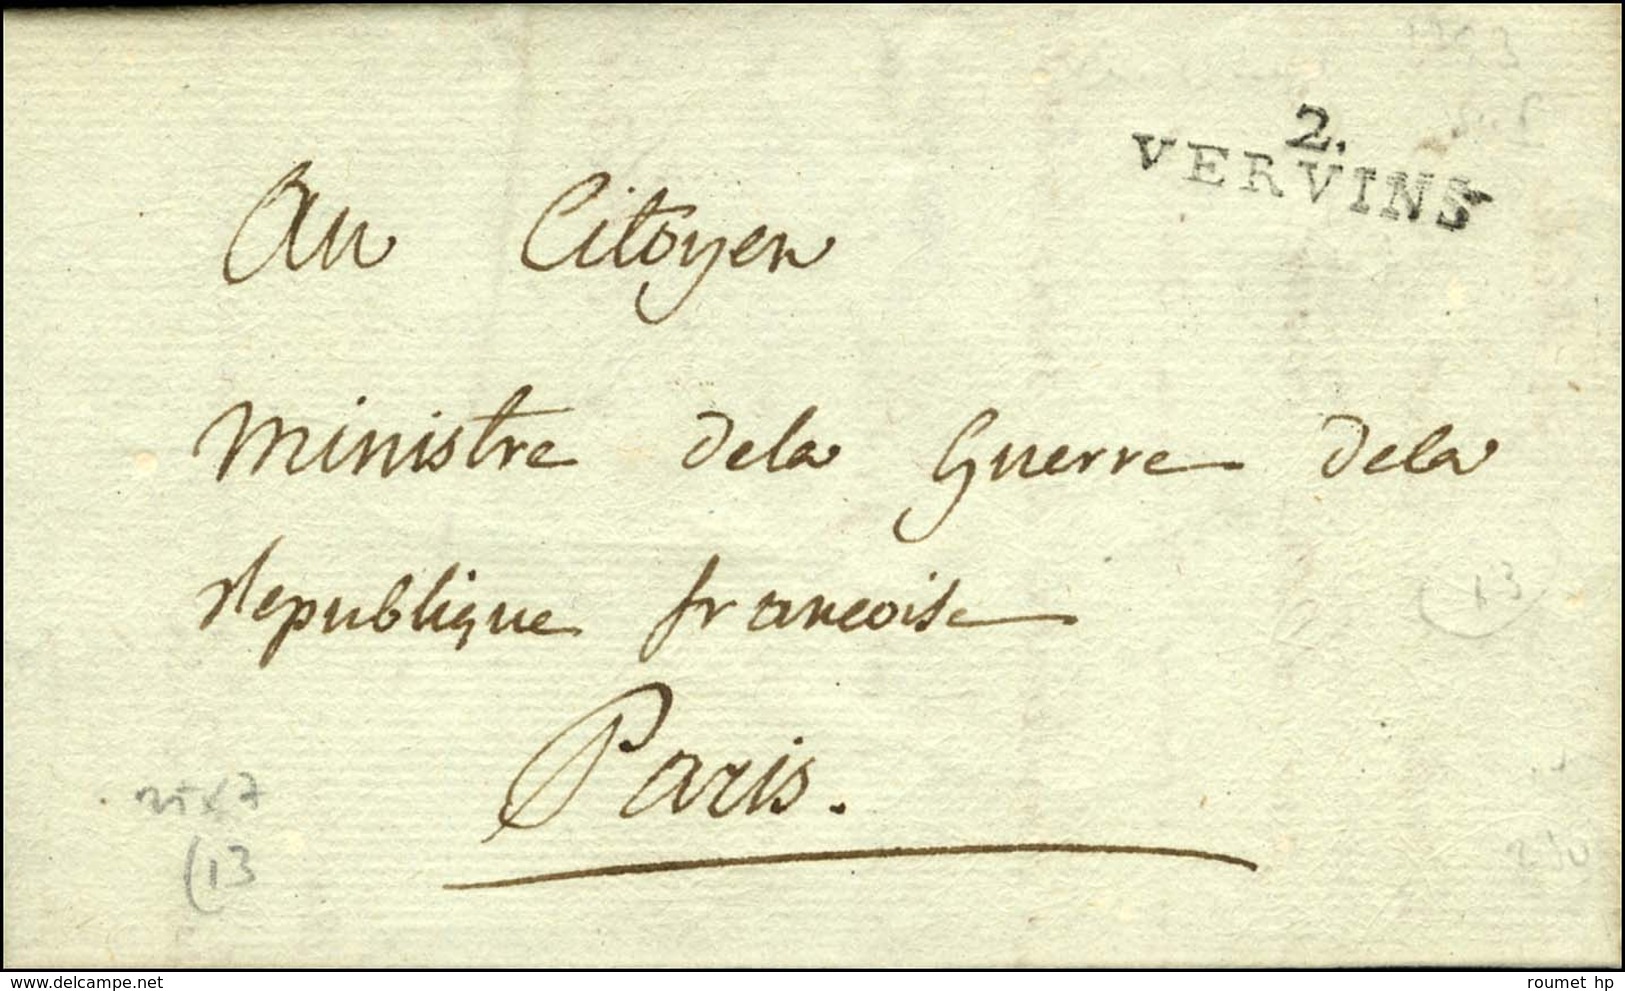 2.
VERVINS
Au Citoyen
Ministre dela Guerre dela
republique francoise
Paris.
13
(13
www.delcampe.net
roumet hp